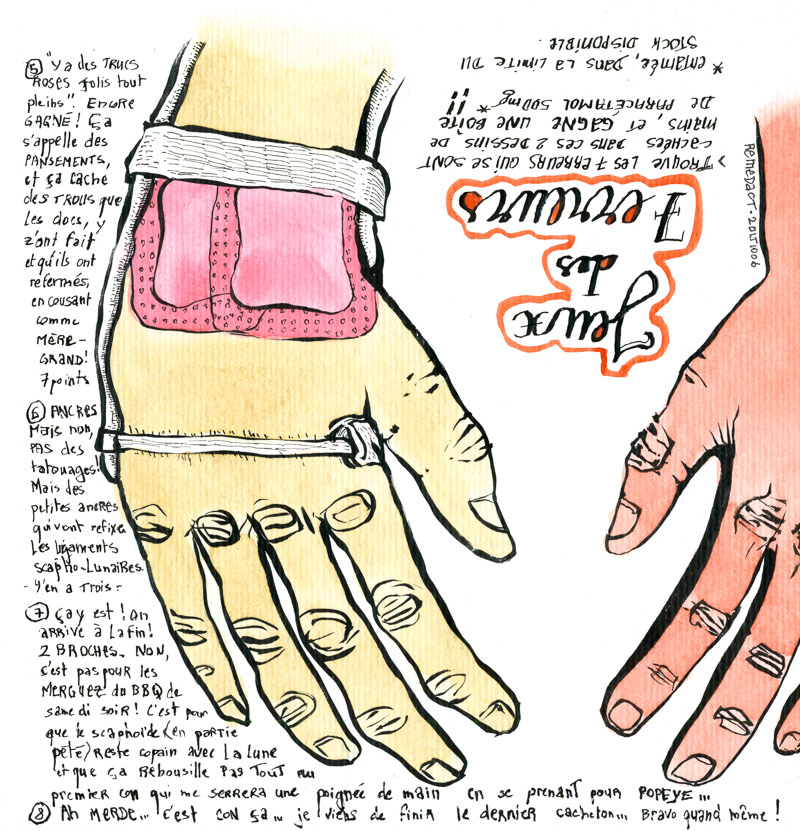 ⑤ "y a des TRUCS
ROSES Jolis tout
pleins". ENCORE
GAGNÉ! Ça
s'appelle des
PANSEMENTS,
et ça cache
des TROUS que
les docs, y
z'ont fait
et qu'ils ont
refermés,
en cousant
comme
MÈRE-
GRAND!
7 points
⑥ ANCRES
Mais non,
PAS des
tatouages.
Mais des
petites ancres
qui vont refixer
les ligaments
scapho-Lunaires.
- Y'en a Trois -
⑦ Ça y est! On
arrive à La fin!
2 BROCHES. NON,
c'est pas pour les
MERGUEZ du BBQ de
samedi soir! C'est pour
que le scaphoïde (en partie
pété) Reste copain avec La Lune
et que ça Rebousille PAS TOUT au
premier con qui me serrera une poignée de main en se prenant pour POPEYE...
⑧ Ah MERDE... c'est CON ÇA... je viens de finir le dernier cacheton... Bravo quand même!
Jeux
des
7 erreurs
> TROUVE LES 7 ERREURS QUI SE SONT
CACHÉES DANS CES 2 DESSINS DE
MAINS, ET GAGNE UNE BOÎTE
DE PARACÉTAMOL 500mg* !!
* entamée, DANS LA LIMITE DU
STOCK DISPONIBLE.
REMEDACT-20151006